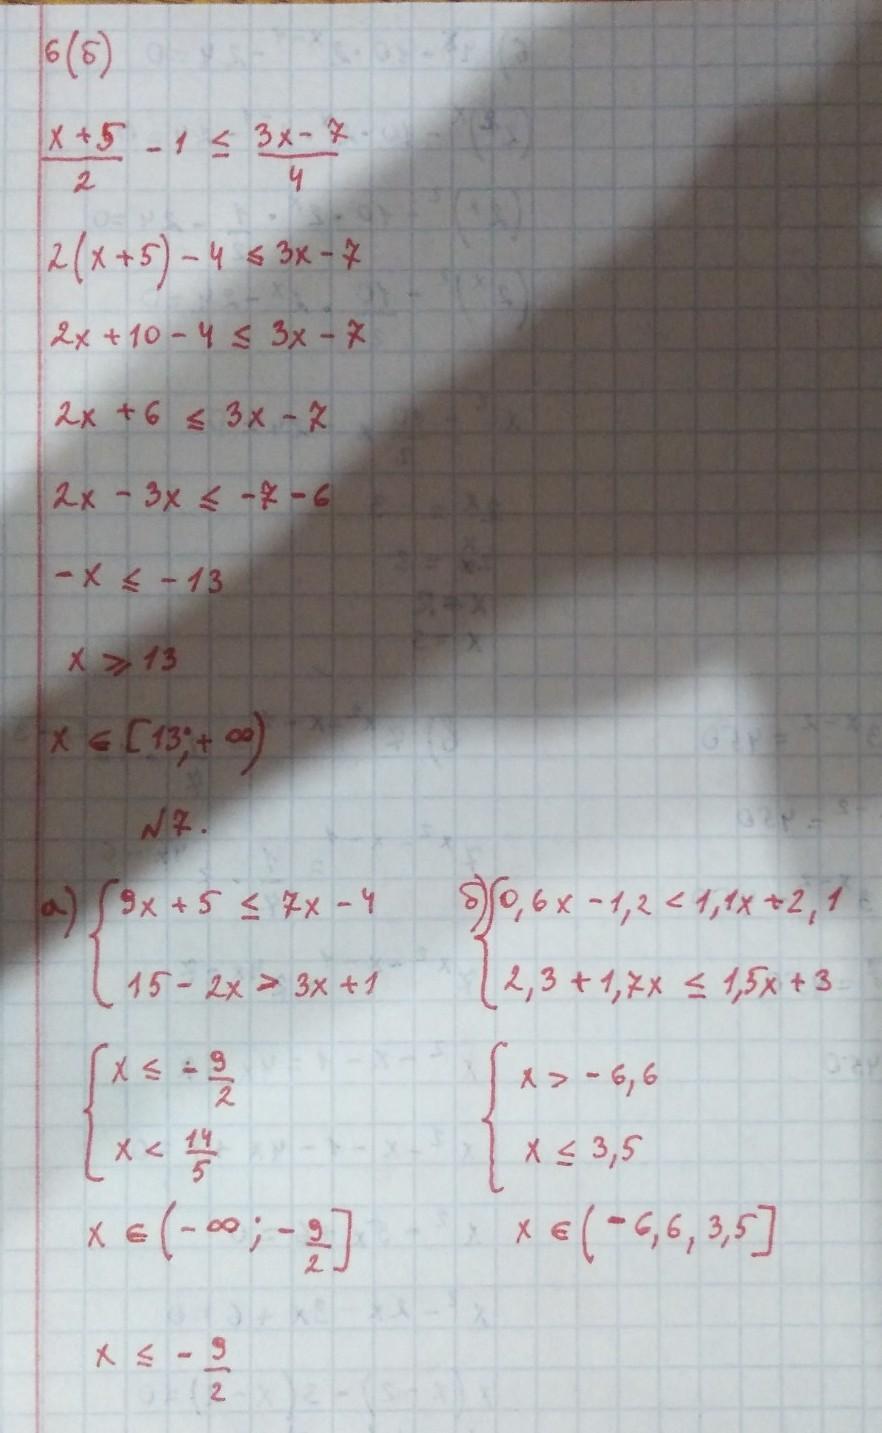 6(б)
x+5/2 - 1 ≤ 3x-7/4
2(x+5) - 4 ≤ 3x - 7
2x + 10 - 4 ≤ 3x - 7
2x + 6 ≤ 3x - 7
2x - 3x ≤ -7 - 6
-x ≤ -13
x ⩾ 13
x ∈ [13; + ∞)
№7.
а) { 9x + 5 ≤ 7x - 4
15 - 2x > 3x + 1
{ x ≤ - 9/2
x < 14/5
x ∈ (- ∞ ; - 9/2]
x ≤ - 9/2
б) { 0,6x - 1,2 < 1,1x + 2,1
2,3 + 1,7x ≤ 1,5x + 3
{ x > - 6,6
x ≤ 3,5
x ∈ ( - 6,6, 3,5]